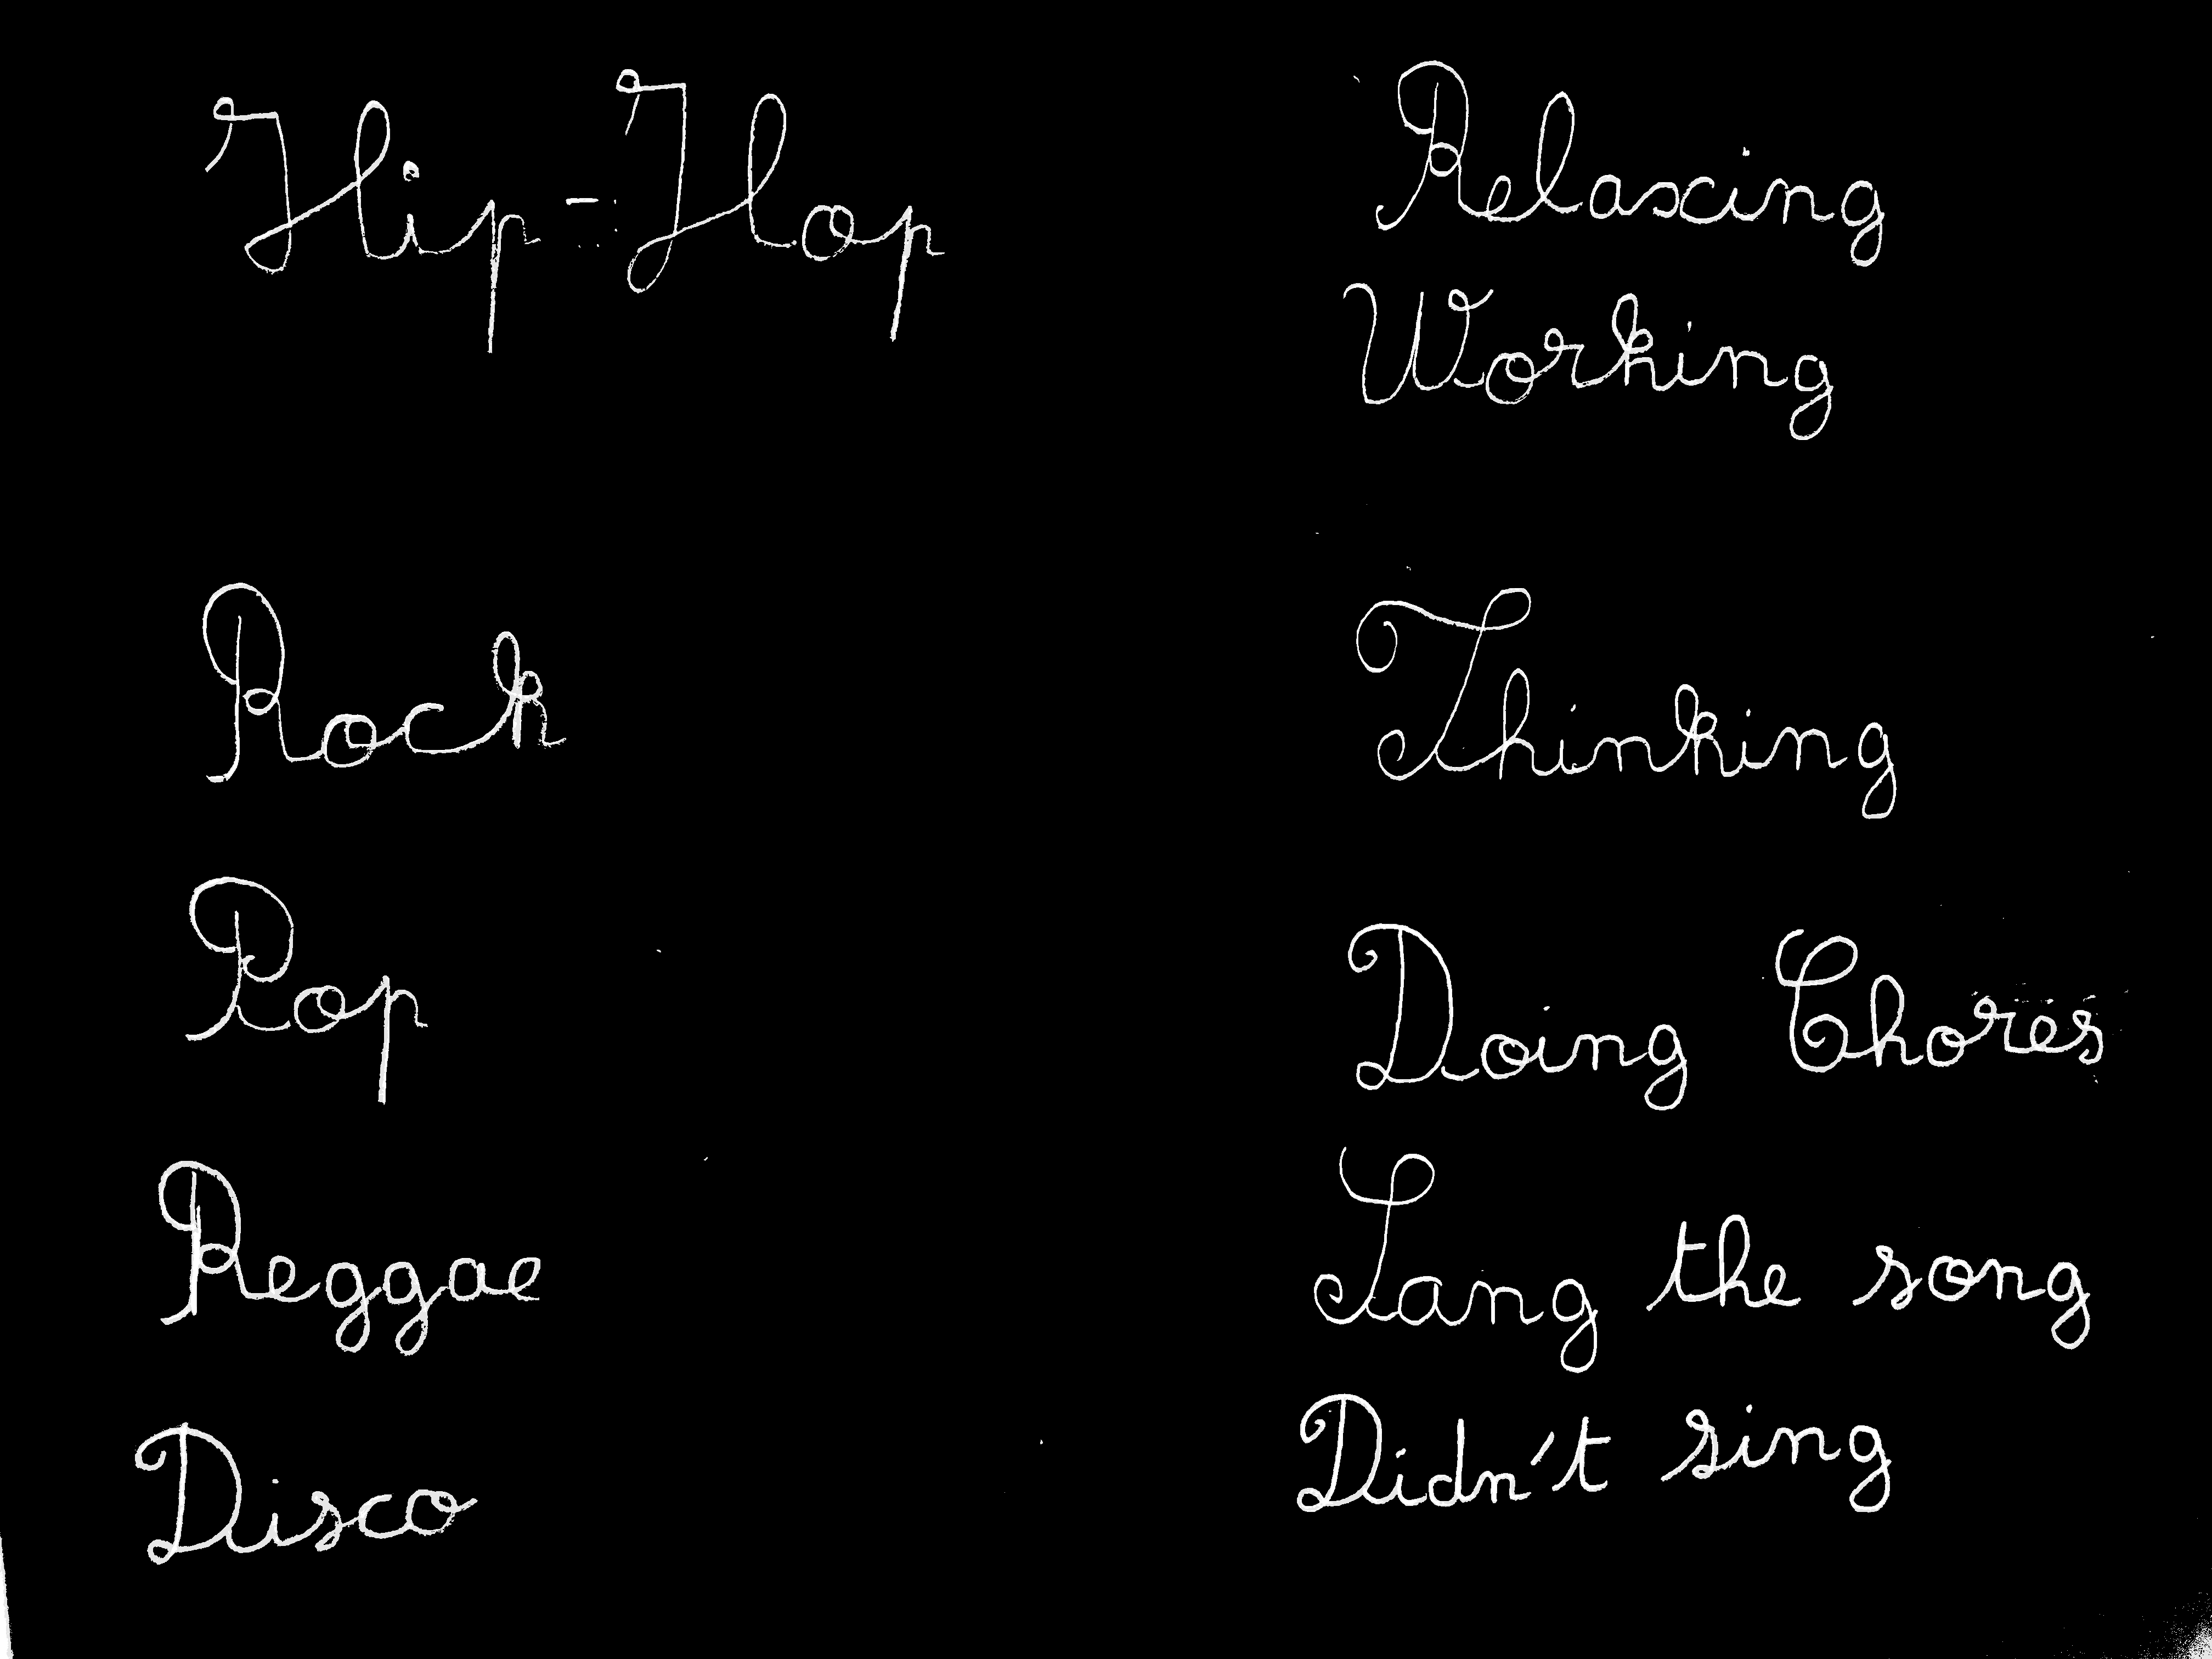 Hip-Hop
Rock
Pop
Reggae
Disco
Relaxing
Working
Thinking
Doing Chores
Sang the song
Didn't sing